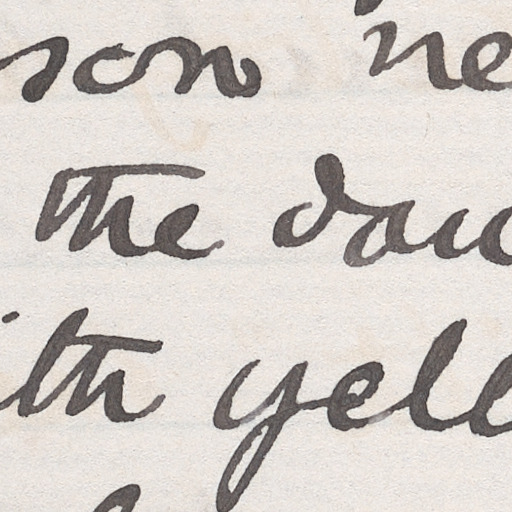 son ne
the dau
ith yell